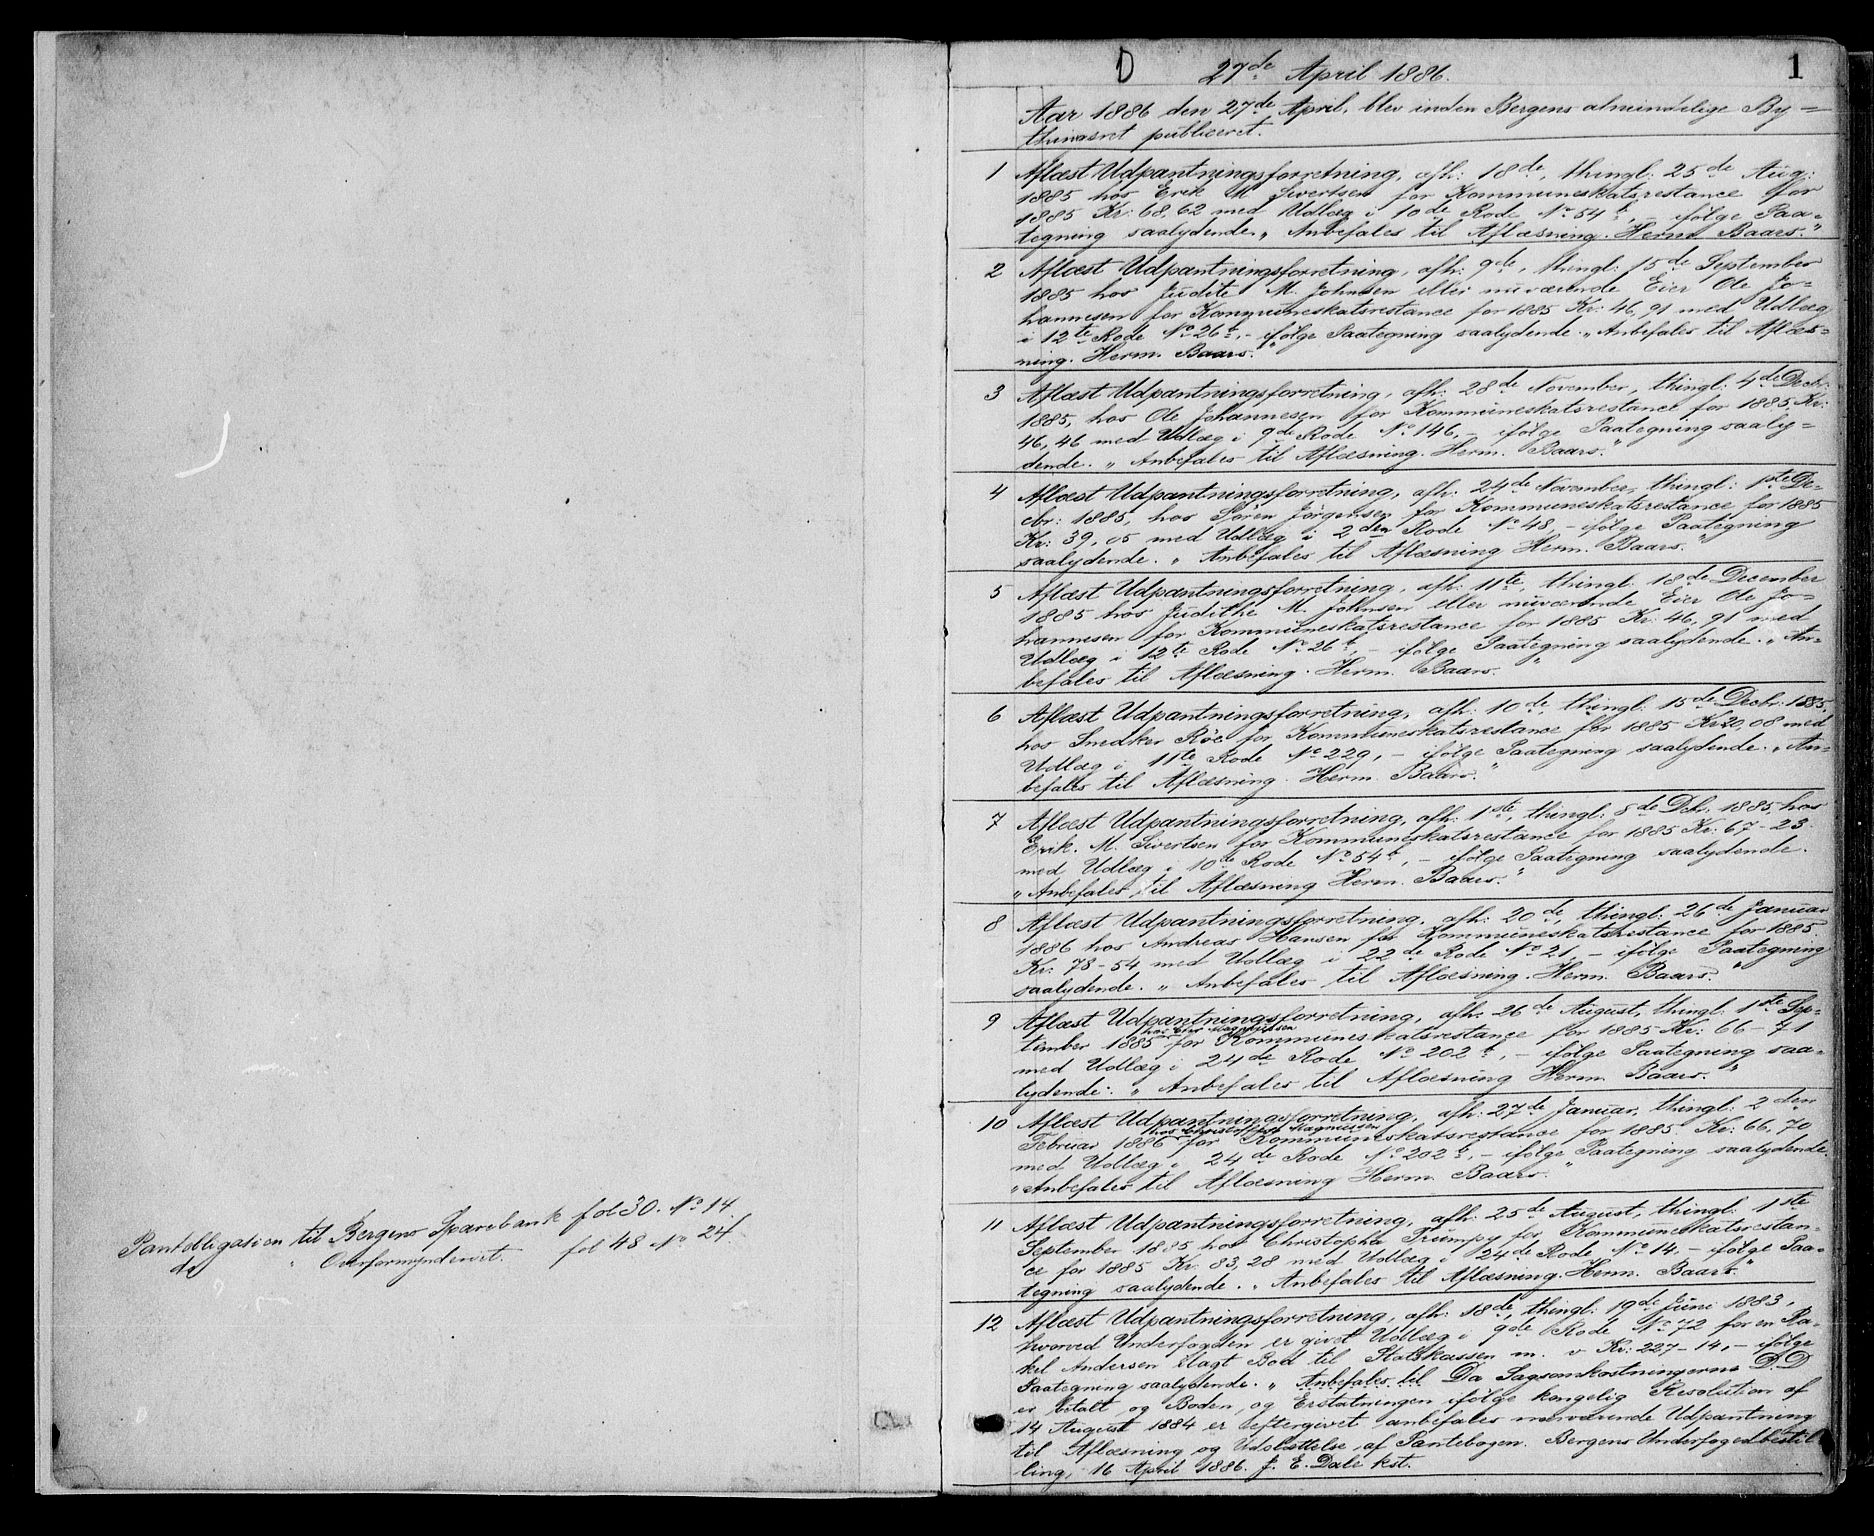 Pantobligasion til Bergens Sparebank fol 30. No 14.
do " Overformynderiet. fol 48 No 24.
D 27de April 1886. 1
Aar 1886 den 27de April, blev inden Bergens almindelige By=
thingsret publiceret.
1 Aflæst Udpantningsforretning, afh: 18de, thingl: 25de Aug:
1885 hos Erik M Sivertsen for Kommuneskatsrestance for
1885 Kr: 68,62 med Udlæg i 10de Rode No 54b, – ifølge Paa=
tegning saalydende. „ Anbefales til Aflæsning. Herm Baars."
2 Aflæst Udpantningsforretning, afh: 9de, thingl: 15de September
1885 hos Judite M. Johnsen eller nuværende Eier Ole Jo=
hannesen for Kommuneskatsrestance for 1885 Kr: 46,91 med Udlæg
i 12te Rode No 26b, – ifølge Paategning saalydende. „ Anbefales til Aflæs=
ning. Herm. Baars."
3 Aflæst Udpantningsforretning, afh: 28de November, thingl: 4de Decbr:
1885, hos Ole Johannesen for Kommuneskatsrestance for 1885 Kr:
46,46 med Udlæg i 9de Rode No 146, – ifølge Paategning saaly=
dende. „ Anbefales til Aflæsning. Herm. Baars."
4 Aflæst Udpantningsforretning, afh: 24de November, thingl: 1ste De=
cbr: 1885, hos Søren Jørgensen for Kommuneskatsrestance for 1885
Kr: 39,05 med Udlæg i 2den Rode No 48, – ifølge Paategning
saalydende. „ Anbefales til Aflæsning Herm. Baars."
5 Aflæst Udpantningsforretning, afh: 11te, thingl: 18de December
1885 hos Judithe M. Johnsen eller nuværende Eier Ole Jo=
hannesen for Kommuneskatsrestance for 1885 Kr: 46,91 med
Udlæg i 12te Rode No 26b, – ifølge Paategning saalydende. „ An=
befales til Aflæsning. Herm. Baars."
6 Aflæst Udpantningsforretning, afh: 10de, thingl: 15de Decbr: 1885,
hos Snedker Røe for Kommuneskatsrestance for 1885 Kr 20,08 med
Udlæg i 11te Rode No 229, – ifølge Paategning saalydende. „ An=
befales til Aflæsning. Herm. Baars."
7 Aflæst Udpantningsforretning, afh: 1ste, thingl: 8de Dcbr. 1885, hos
Erik. M. Sivertsen for Kommuneskatsrestance for 1885 Kr: 67–23.
med Udlæg i 10de Rode No 54b, – ifølge Paategning saalydende.
„ Anbefales til Aflæsning Herm. Baars."
8 Aflæst Udpantningsforretning, afh: 20de, thingl: 26de Januar
1886 hos Andreas Hansen for Kommuneskatsrestance for 1885.
Kr: 78–54 med Udlæg i 22de Rode No 21, – ifølge Paategning
saalydende. „ Anbefales til Aflæsning. Herm. Baars."
9 Aflæst Udpantningsforretning, afh: 26de August, thingl: 1ste Sep=
hos Magnussen
tember 1885 for Kommuneskatsrestance for 1885 Kr: 66–71
med Udlæg i 24de Rode No 202b, – ifølge Paategning saa=
lydende: „ Anbefales til Aflæsning Herm. Baars."
10 Aflæst Udpantningsforretning, afh: 27de Januar, thingl: 2den
hos Magnussen
Februar 1886 for Kommuneskatsrestance for 1885 Kr: 66,70
med Udlæg i 24de Rode No 202b, – ifølge Paategning saalydende.
„ Anbefales til Aflæsning Herm. Baars."
11 Aflæst Udpantningsforretning, afh: 25de August, thingl: 1ste
September 1885 hos Christopher Trumpy for Kommuneskatsrestan=
ce for 1885 Kr. 83,28 med Udlæg i 24de Rode No 14, – ifølge Paa=
tegning saalydende. „ Anbefales til Aflæsning. Herm. Baars."
12 Aflæst Udpantningsforretning, afh: 18de, thingl: 19de Juni 1883,
hvorved Underfogden er givet Udlæg i 9de Rode No 72 for en Ra=
kel Andersen ilagt Bod til Statskassen m. v Kr: 227–14, – ifølge
Paategning saalydende. „ Anbefales til Da Sagsomkostningerne D.D
er betalt og Boden, og Erstatningen ifølge kongelig Resolution af
14 August 1884 er eftergivet anbefales nærværende Udpantning
til Aflæsning og Udslettelse af Pantebogen. Bergens Underfogedbestil=
ling, 16 April 1886. J. E. Dale kst.